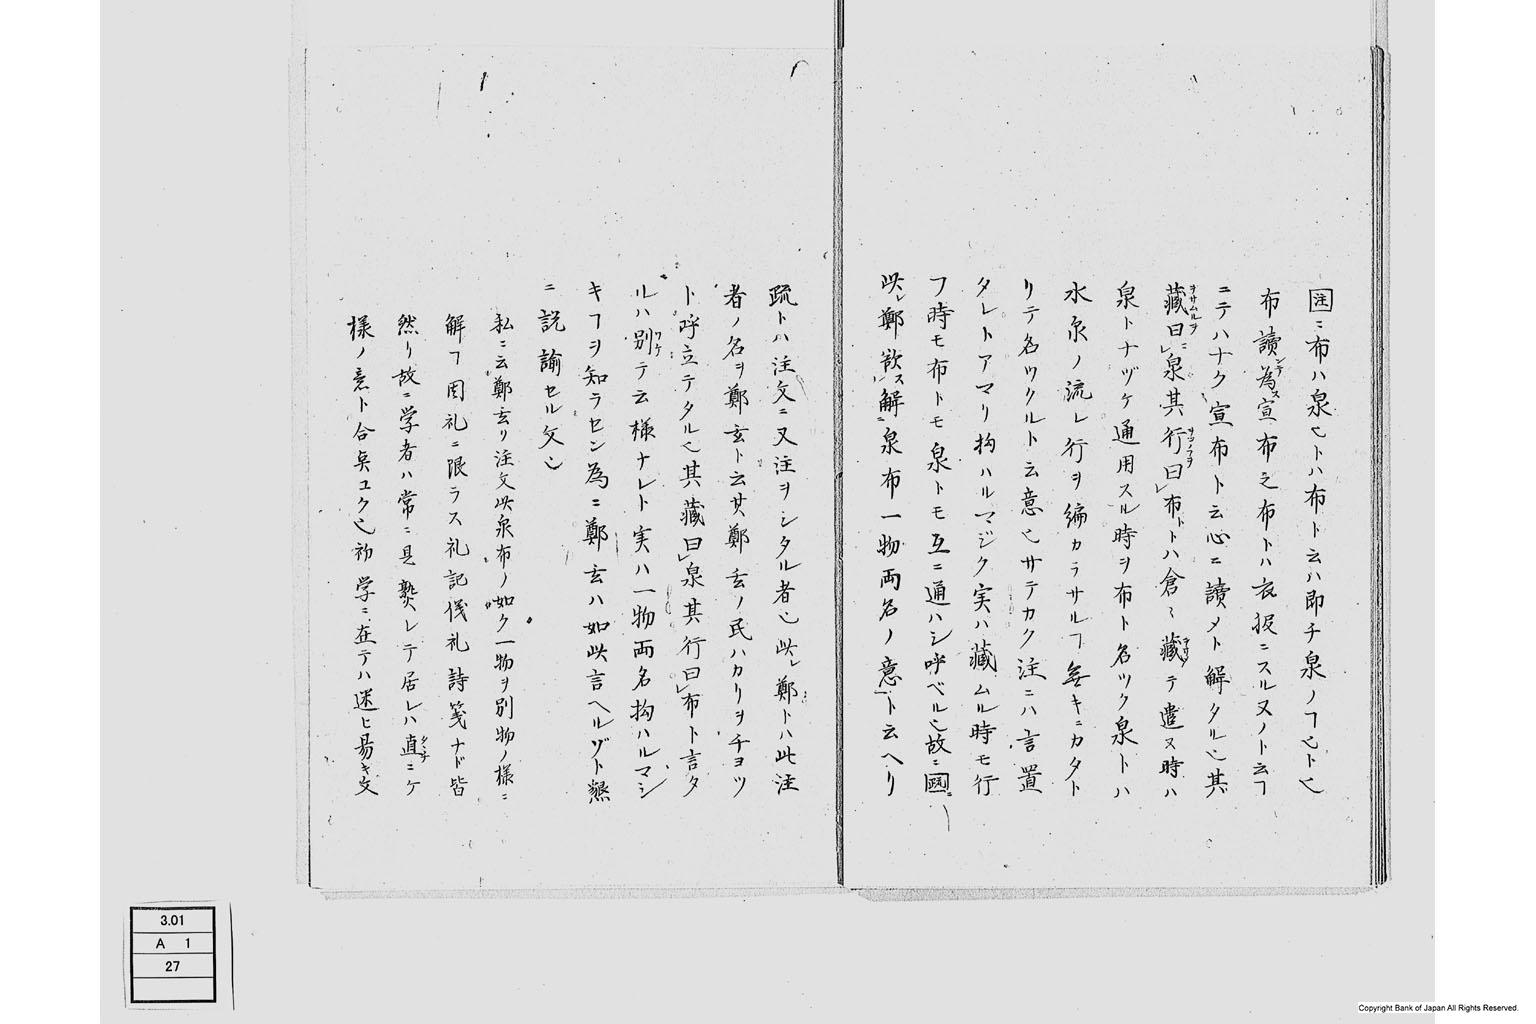 注ニ布ハ泉也トハ布ト云ハ即チ泉ノヿ也ト也
布讀為宣布之布トハ衣服ニスルヌノト云ヿ
ニテハナク宣布ト云心ニ讀メト解タル也其
藏曰泉其行曰布トハ倉ニ藏テ遣ヌ時ハ
泉トナヅケ通用スル時ヲ布ト名ツク泉トハ
水泉ノ流レ行ヲ編カラサルヿ無キニカタト
リテ名ツクルト云意也サテカク注ニハ言置
タレトアマリ拘ハルマジク実ハ藏ムル時モ行
フ時モ布トモ泉トモ互ニ通ハシ呼ベル也故ニ
此レ鄭欲ス解ニ泉布一物両名ノ意ト云ヘリ
疏トハ注文ニ又注ヲシタル者也此レ鄭トハ此注
者ノ名ヲ鄭玄ト云其鄭玄ノ民ハカリヲチヨツ
ト呼立テタル也其藏曰泉其行曰布ト言タ
ルハ別テ云様ナレト実ハ一物両名拘ハルマシ
キヿヲ知ラセン為ニ鄭玄ハ如此言ヘルゾト懇
ニ説諭セル文也
私ニ云鄭玄リ注文此泉布ノ如ク一物ヲ別物ノ様ニ
解フ周礼ニ限ラス礼記儀礼詩箋ナド皆
然リ故ニ学者ハ常ニ見熟レテ居レハ直ニケ
様ノ意ト合点ユク也初学ニ在テハ迷ヒ易キ文
3.01
A 1
27
Copyright Bank of Japan All Rights Reserved.